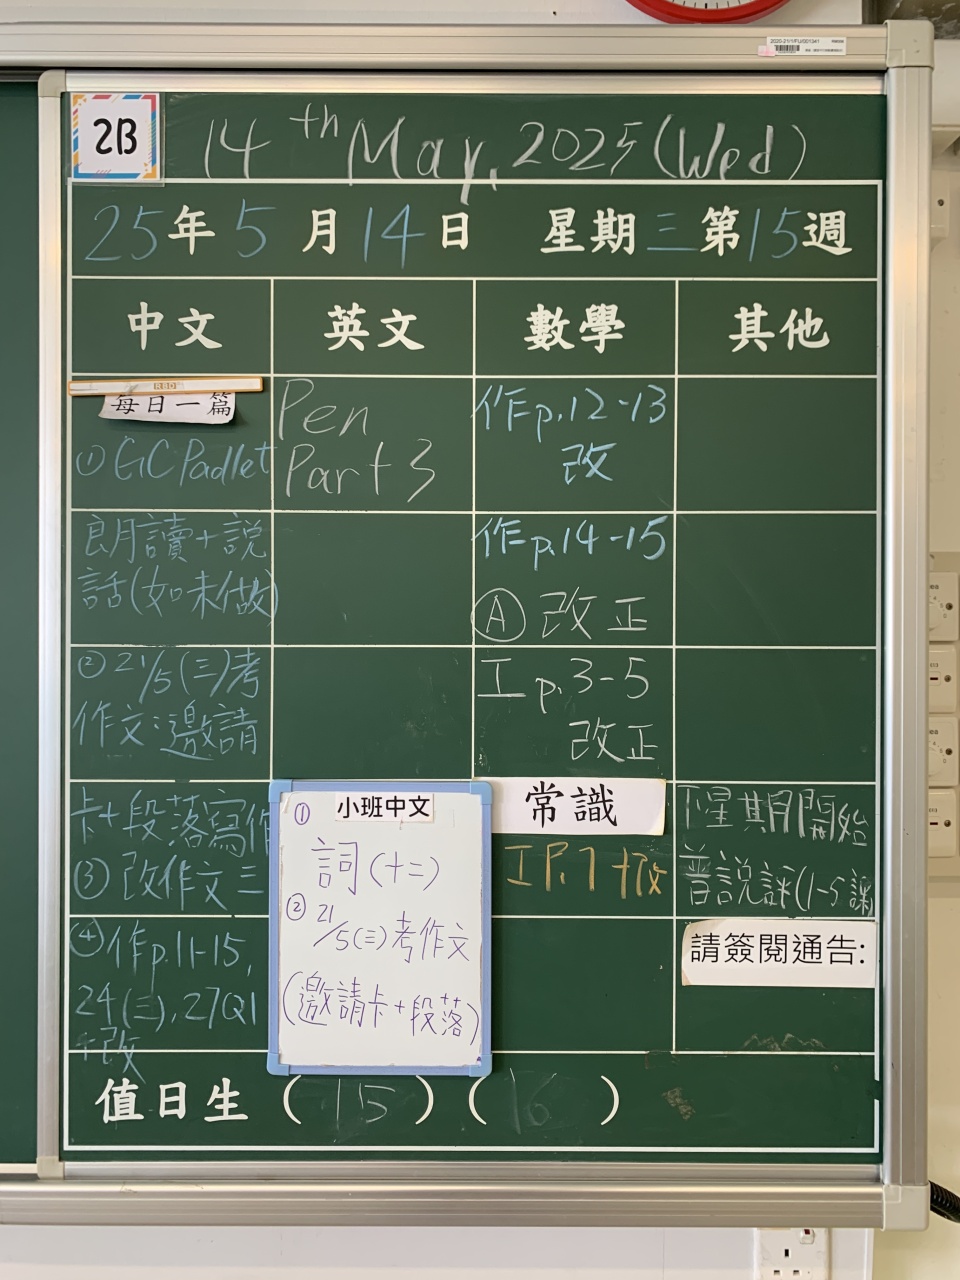 2B
14th May, 2025 (Wed)
25年5月14日 星期三第15週
中文 英文 數學 其他
每日一篇
①GC Padlet
朗讀+說
話(如未做)
②21/5(三)考
作文:邀請
卡+段落寫作
③改作文三
④作p.11-15,
24(三),27Q1
+改
Pen
Part 3
作p.12-13
改
作p.14-15
Ⓐ改正
工p.3-5
改正
常識
工P.7+改
下星期開始
普說評(1-5課
請簽閱通告:
小班中文
①
詞(十二)
②21/5(三)考作文
(邀請卡+段落)
值日生 (15) (16)
RBD
2020-21/1/FU/001241